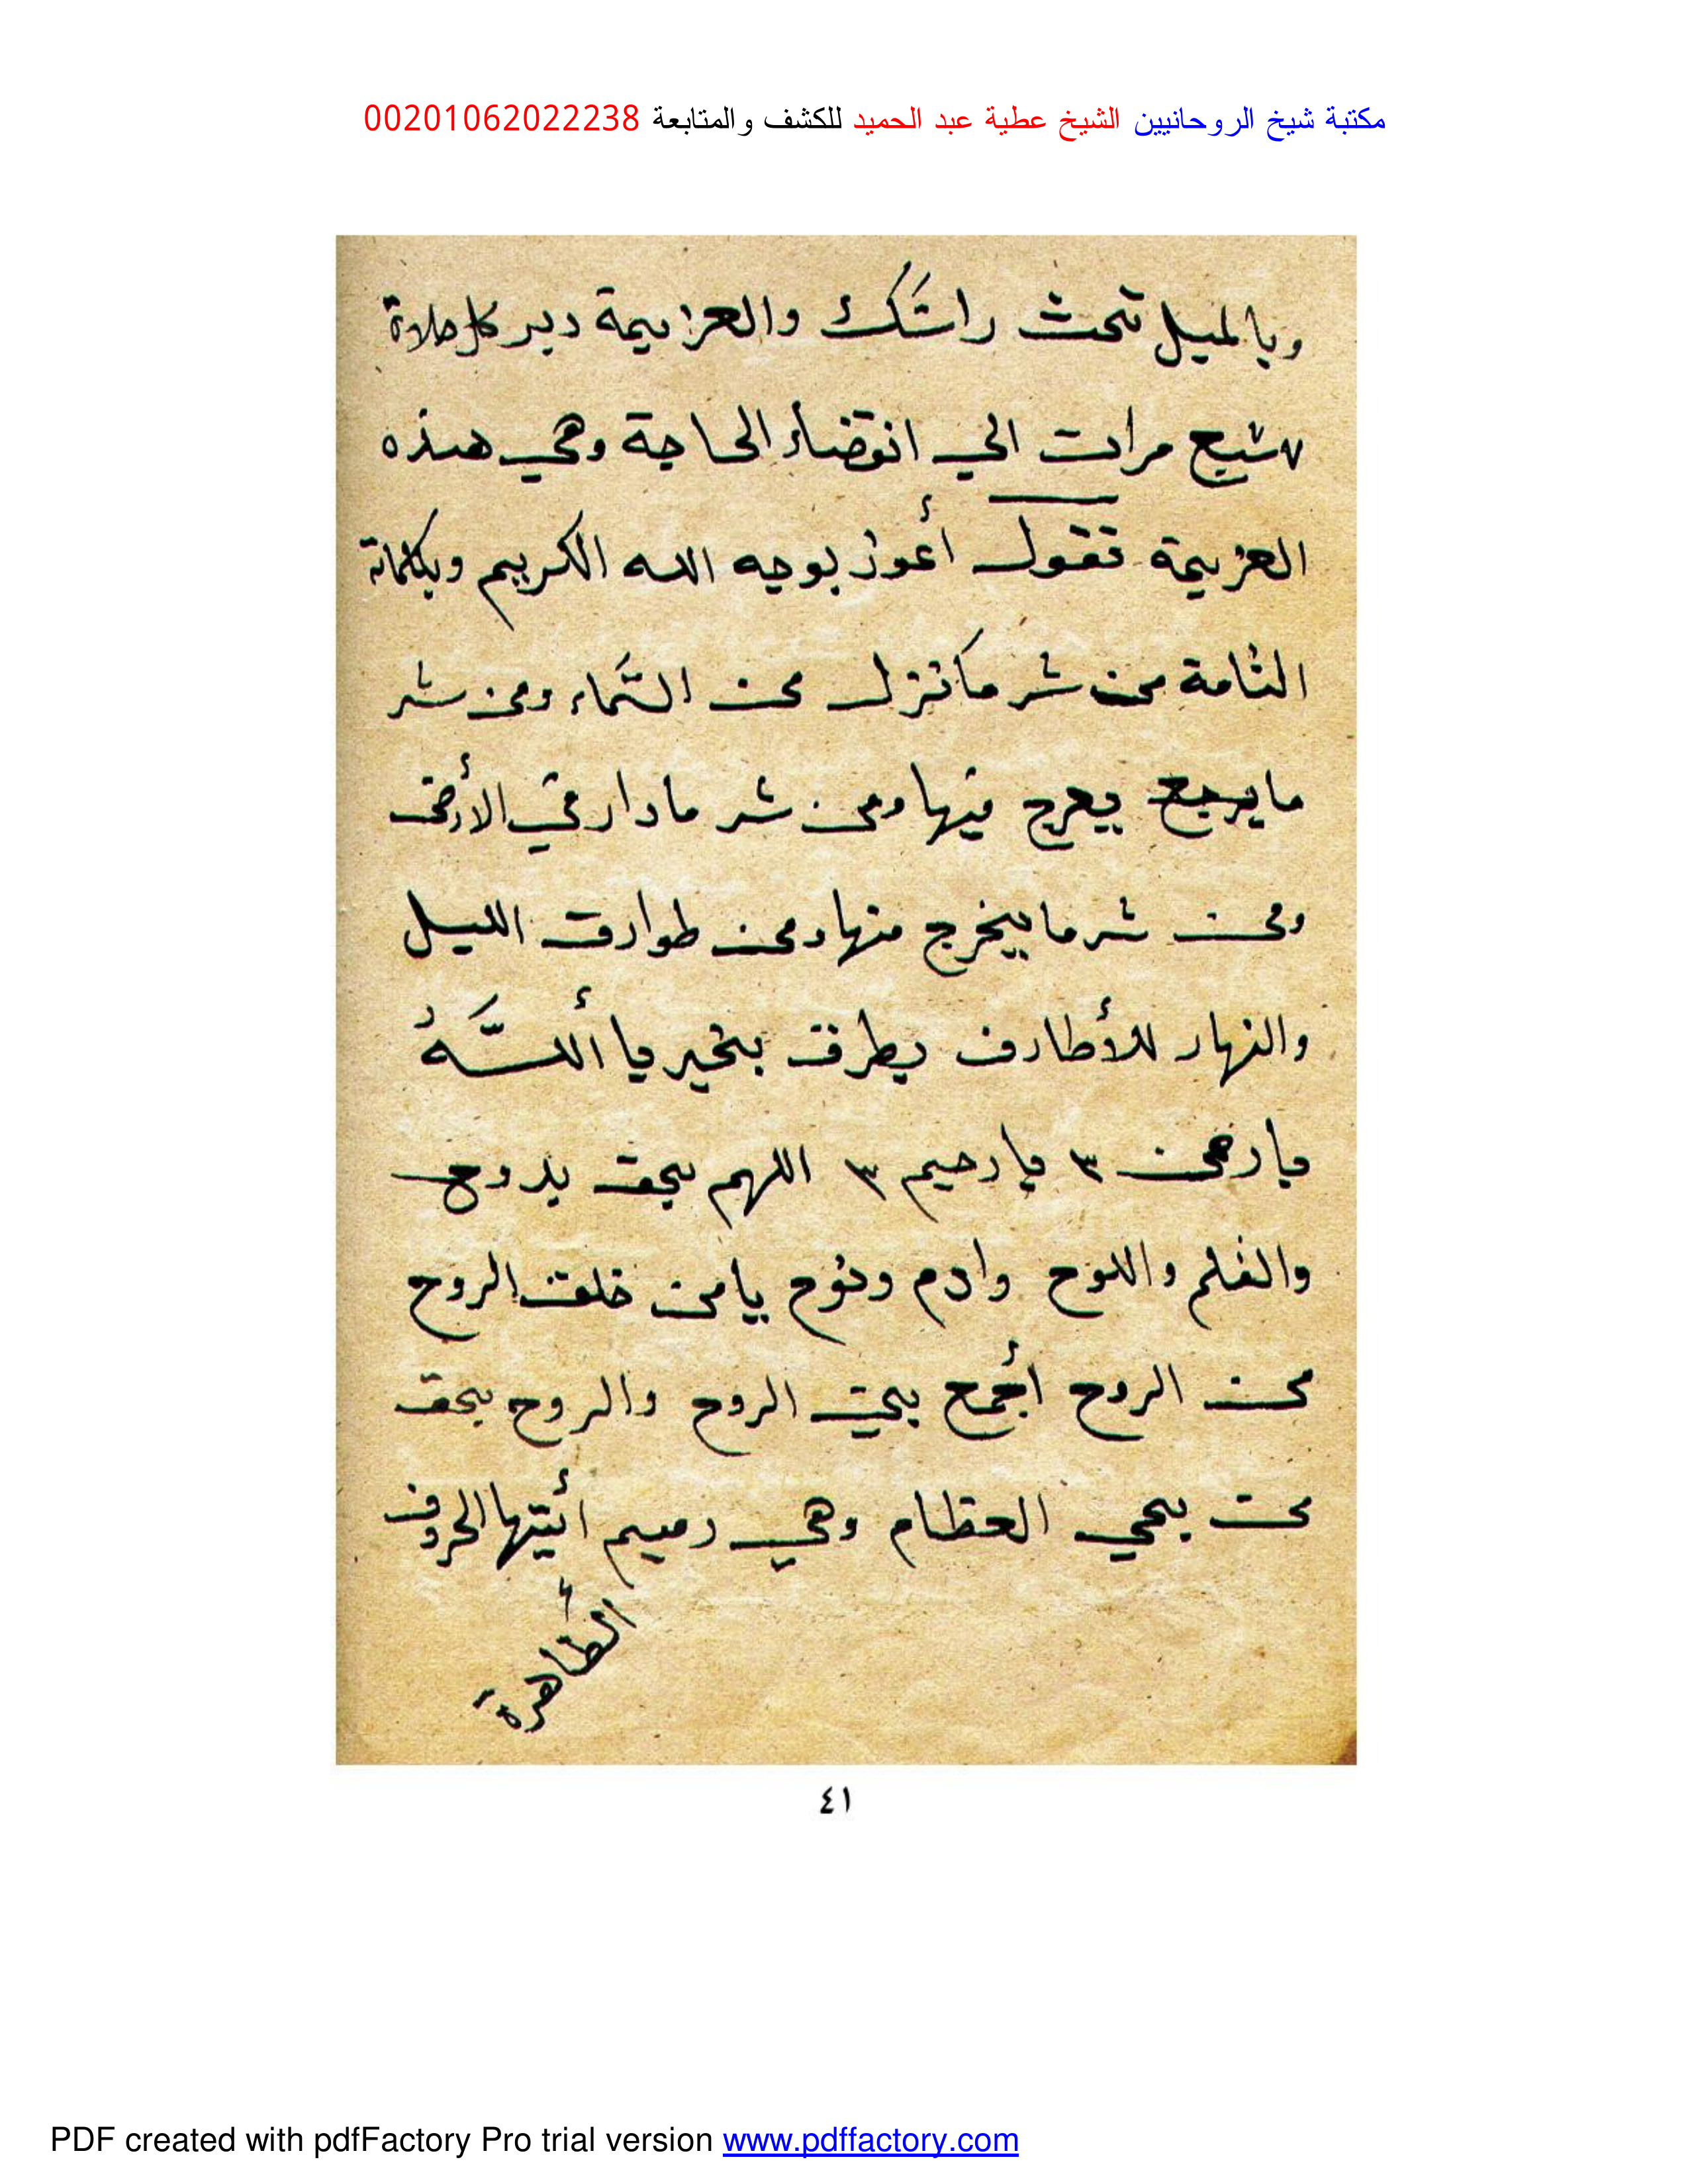 مكتبة شيخ الروحانيين الشيخ عطية عبد الحميد للكشف والمتابعة 00201062022238
وبالميل تحث راسَك والعزيمة دبر كل صلاة
٧ سبع مرات الي انقضاء الحاجة وهي هذه
العزيمة تقول أعوذ بوجه الله الكريم وبكلماته
التامة من شر ما نزل من السَّماء ومن شر
ما يرجع يعرج فيها ومن شر ما دار في الأرض
ومن شر ما يخرج منها ومن طوارق الليل
والنهار للأطارف يطرق بخير يا أللَّهُ
يا رحمن ٣ يا رحيم ٣ اللهم بحق بدوح
والقلم واللوح وادم ونوح يا من خلق الروح
من الروح أجمع بين الروح والروح بحق
من يحي العظام وهي رميم أيتها الحروف
الطاهرة
٤١
PDF created with pdfFactory Pro trial version www.pdffactory.com